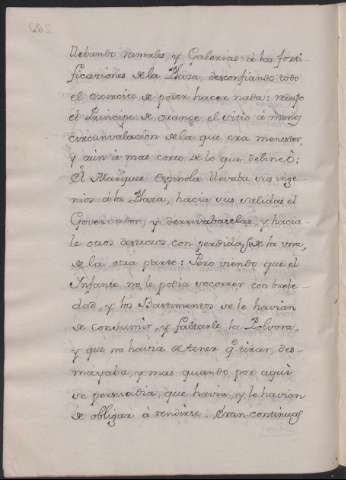 llebando ramales y Galerias á las forti
ficaciones de la Plaza, desconfiando todo
el exercito de poder hacer nada: redujo
el Principe de Orange el sitio á menos
circunvalacion de la que era menester,
y aún á mas corto de lo que delineó:
El Marques Espinola llevaba sus inge
nios á la Plaza, hacia sus salidas el
Governador, y derrivabaselas, y hacia
le otros daños con perdidas de la una,
de la otra parte: Pero viendo que el
Infante no le podia socorrer con breve
dad, y los Bastimentos se le havian
de consumir, y faltarle la Polvora,
y que no havia de tener q.e tirar, des
mayaba, y mas quando por aqui
se persuadia, que havia, y le havian
de obligar á rendirse. Eran continuas